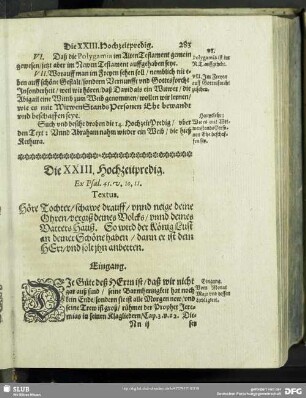 Die XXIII. Hochzeitpredig. 283
VI. Daß die Polygamia im Alten Testament gemein
gewesen / jetzt aber im Newen Testament auffgehaben seye.
VII. Worauff man im Freyen sehen soll / nemblich nit al-
lein auff schöne Gestalt / sondern Vernunfft und Gottesforcht.
Insonderheit / weil wir hören / daß David als ein Witwer / die
Abigail eine Wittib zum Weib genommen / wollen wir lernen /
wie es mit Witwen Stands Personen Ehe bewandt
und beschaffen seye.
Such und besihe droben die 14. Hochzeit Predig / uber
den Text: Unnd Abraham nahm wider ein Weib / die hieß
Kethura.
Die XXIII. Hochzeitpredig.
Ex Psal. 45. v. 10, 11.
Textus.
Höre Tochter / schawe drauff / unnd neige deine
Ohren / vergiß deines Volcks / unnd deines
Vatters Hauß. So wird der König Lust
an deiner Schöne haben / dann er ist dein
HErr / und solt ihn anbetten.
Eingang.
DIe Güte deß HErrn ist / daß wir nicht
gar auß sind / seine Barmhertzigkeit hat noch
kein Ende / sondern sie ist alle Morgen new / und
seine Trew ist groß / rühmet der Prophet Jere-
mias in seinen Klagliedern / Cap. 3. v. 22. Die-
Nn ij
Eingang.
SLUB